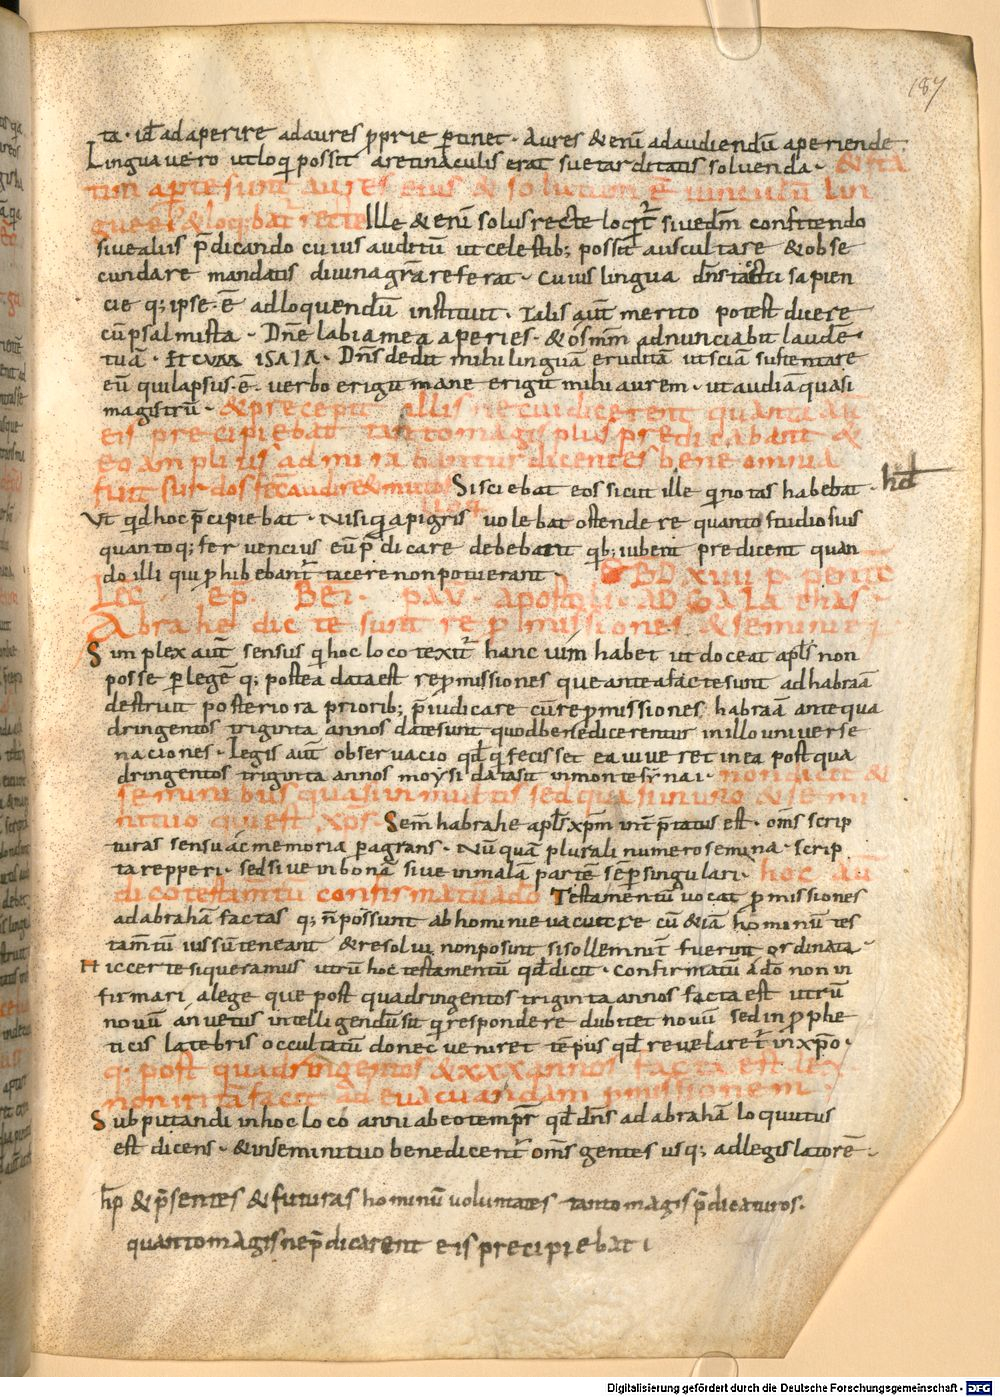 187
ta · id̄ ad aperire ad aures p̄prie ꝑtinet · Aures & eni̅ ad audiendū aperiende ·
Lingua uero ut loqui possit a retinaculis erat sue tarditatis soluenda · & sta
tim apte sunt aures eius & solutum ē uinculum lin
gue ei᷒ & loqebat᷒ recte Ille & eni̅ solus recte loqit᷒ siue dm̄ confitendo
siue aliis p̄dicando cuius auditū ut celestib; possit auscultare & obse
cundare mandatis diuina gr̄a referat · Cuius lingua dn̄s tactu sapien
cie q; ipse · ē · ad loquendū instituit · Talis aut̄ merito potest dicere
cū psalmista · Dn̄e labia mea aperies · & os m̄m adnunciabit laudē
tuā · ET CUM ISAIA · Dn̄s dedit mihi linguā eruditā ut sciā sustentare
eū qui lapsus · ē · uerbo erigit mane erigit mihi aurem · ut audiā quasi
magistrū · & precepit illis ne cui dicerent quanto aut̄
eis precipiebat tanto magis plus predicabant &
eo amplius admirabantur dicentes bene omnia
fecit surdos fecit audire & mutos loq Si sciebat eos sicut ille qi notas habebat · hd̄
Ut qd̄ hoc p̄cipiebat · Nisi qa pigris uolebat ostendere quanto studiosius
quanto q; feruencius eū p̄dicare debebant qib; iubent predicent quan
do illi qui ꝓhibebant᷒ tacere non potuerant · EBD XIIII P · PENTC
Lec̄ · ep̄ · BEĪ · PAV · apostoli · AD GALATHAS ·
Abrahe dicte sunt repromissiones & semini ei᷒
Simplex aut̄ sensus qi hoc loco texit᷒ hanc uim habet ut doceat apl̄s non
posse ꝑ legē q; postea data est repromissiones que ante facte sunt ad habraā
destruit posteriora priorib; p̄iudicare cū repromissiones habraā ante qua
dringentos triginta annos date sunt quod benedicerentur in illo uniuerse
naciones · Legis aut̄ obseruacio qd̄ qi fecisset ea uiueret in ea post qua
dringentos triginta annos moysi data sit in monte synai · non dicit &
seminibus quasi in multis sed quasi in uno & semi
ni tuo qui est xp̄s · Sem̄ habrahe apl̄s xp̄m int̄p̄tatus est · om̄s scrip
turas sensu ac memoria ꝑagrans · Nū quā plurali numero semina · scrip
ta repperi · sed siue in bonā siue in malā partē sēꝑ singulari · hoc aut̄
dico testamtū confirmatū a dō Testamentū uocat ꝓmissiones
ad abrahā factas q; n̄ possunt ab homine uacuere cū & iā hominū tes
tam̄tū ius sūteneant & resolui non possint si sollemnit᷒ fuerint ordinata ·
Hic certe si queramus utrū hoc testamentū qd̄ dicit · confirmatū a dō non in
firmari a lege que post quadringentos triginta annos facta est utrū
nouū an uetus intelligendū sit qi respondere dubitet nouū sed in prophe
ticis latebris occultatū donec ueniret tēpus qd̄ reuelaret᷒ in xp̄o ·
q; post quadringentos & xxx annos facta est lex
non irritā facit ad euacuandam ꝓmissionem ·
Subputandi in hoc loco anni ab eo tempr̄ qd̄ dn̄s ad abrahā loquutus
est dicens · & in semini tuo benedicent᷒ om̄s gentes usq; ad legislatorē ·
hp̄ & p̄sentes & futuras hominū uoluntates tanto magis p̄dicaturos ·
quanto magis ne p̄dicarent eis precipiebat
Digitalisierung gefördert durch die Deutsche Forschungsgemeinschaft - DFG